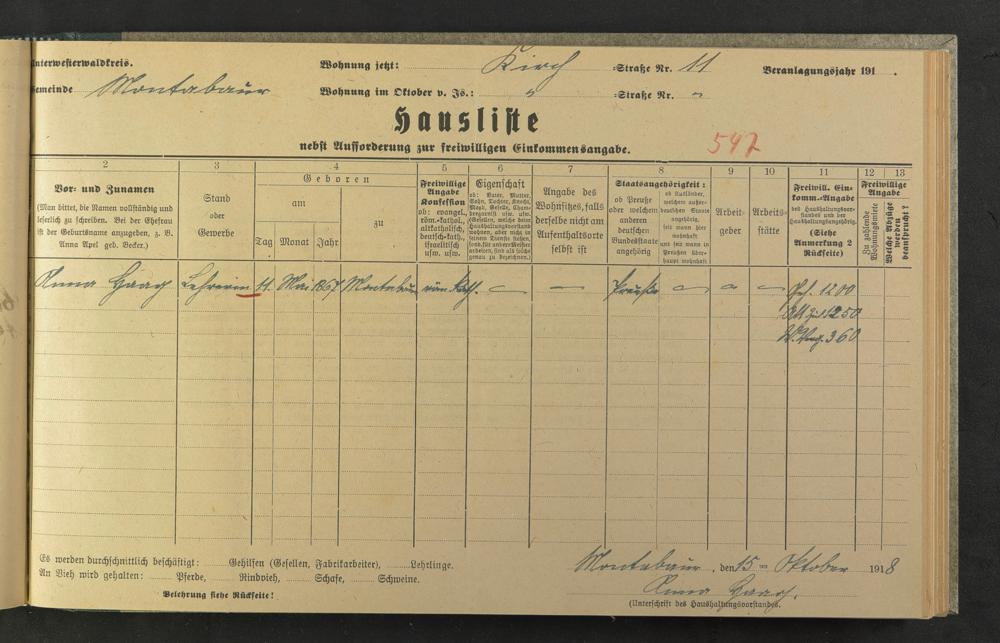 Unterwesterwaldkreis. Wohnung jetzt: Kirch =Straße Nr. 11 Veranlagungsjahr 191 .
Gemeinde Montabaur Wohnung im Oktober v. Js.: " =Straße Nr. "
Hausliste
nebst Aufforderung zur freiwilligen Einkommensangabe. 547
2 3 4 5 6 7 8 9 10 11 12 13
Vor- und Zunamen
(Man bittet, die Namen vollständig und
leserlich zu schreiben. Bei der Ehefrau
ist der Geburtsname anzugeben, z. B.
Anna Apel geb. Becker.)
Stand
oder
Gewerbe
Geboren
am
zu
Tag Monat Jahr
Freiwillige
Angabe
Konfession
ob: evangel.,
röm.-kathol.,
altkatholisch,
deutsch-kath.,
israelitisch
usw. usw.
Eigenschaft
ob: Vater, Mutter,
Sohn, Tochter, Knecht,
Magd, Geselle, Cham-
bregarnist usw. usw.
(Gesellen, welche beim
Haushaltungsvorstand
wohnen, aber nicht in
seinem Dienste stehen,
sind, für andere Meister
arbeiten, sind als solche
genau zu bezeichnen.)
Angabe des
Wohnsitzes, falls
derselbe nicht am
Aufenthaltsorte
selbst ist
Staatsangehörigkeit:
ob Preuße
oder welchem
anderen
deutschen
Bundesstaate
angehörig
ob Ausländer,
welchem außer-
deutschen Staate
angehörig,
seit wann hier
wohnhaft
und seit wann in
Preußen über-
haupt wohnhaft
Arbeit-
geber
Arbeits-
stätte
Freiwill. Ein-
komm.-Angabe
des Haushaltungsvor-
standes und der
Haushaltungsangehörig
(Siehe
Anmerkung 2
Rückseite)
Freiwillige
Angabe
Zu zahlende
Wohnungsmiete
Welche Abzüge
werden
beansprucht?
Anna Haag Lehrerin 11. Mai 1867 Montabaur röm. kath. — — Preuße — — — Geh. 1200
1250
360
Es werden durchschnittlich beschäftigt: Gehilfen (Gesellen, Fabrikarbeiter), Lehrlinge.
An Vieh wird gehalten: Pferde, Rindvieh, Schafe, Schweine.
Belehrung siehe Rückseite!
Montabaur, den 15ten Oktober 1918
Anna Haag.
(Unterschrift des Haushaltungsvorstandes.